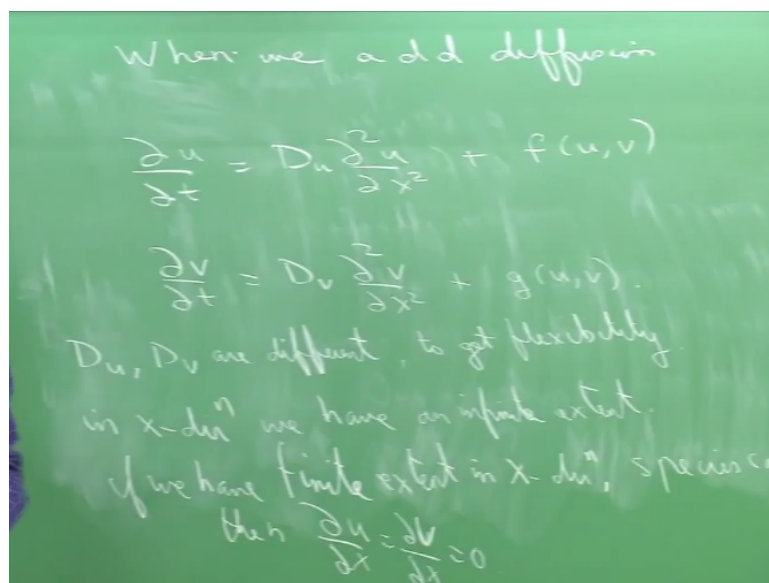 When we add diffusion
∂u/∂t = Dᵤ ∂²u/∂x² + f(u,v)
∂v/∂t = Dᵥ ∂²v/∂x² + g(u,v).
Dᵤ, Dᵥ are different, to get flexibility.
in x-dirⁿ we have an infinite extent.
if we have finite extent in x-dirⁿ, species
then ∂u/∂x = ∂v/∂x = 0